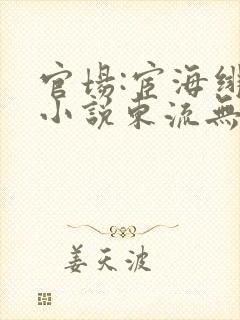 官場:宦海纵
小說東流無
姜天波